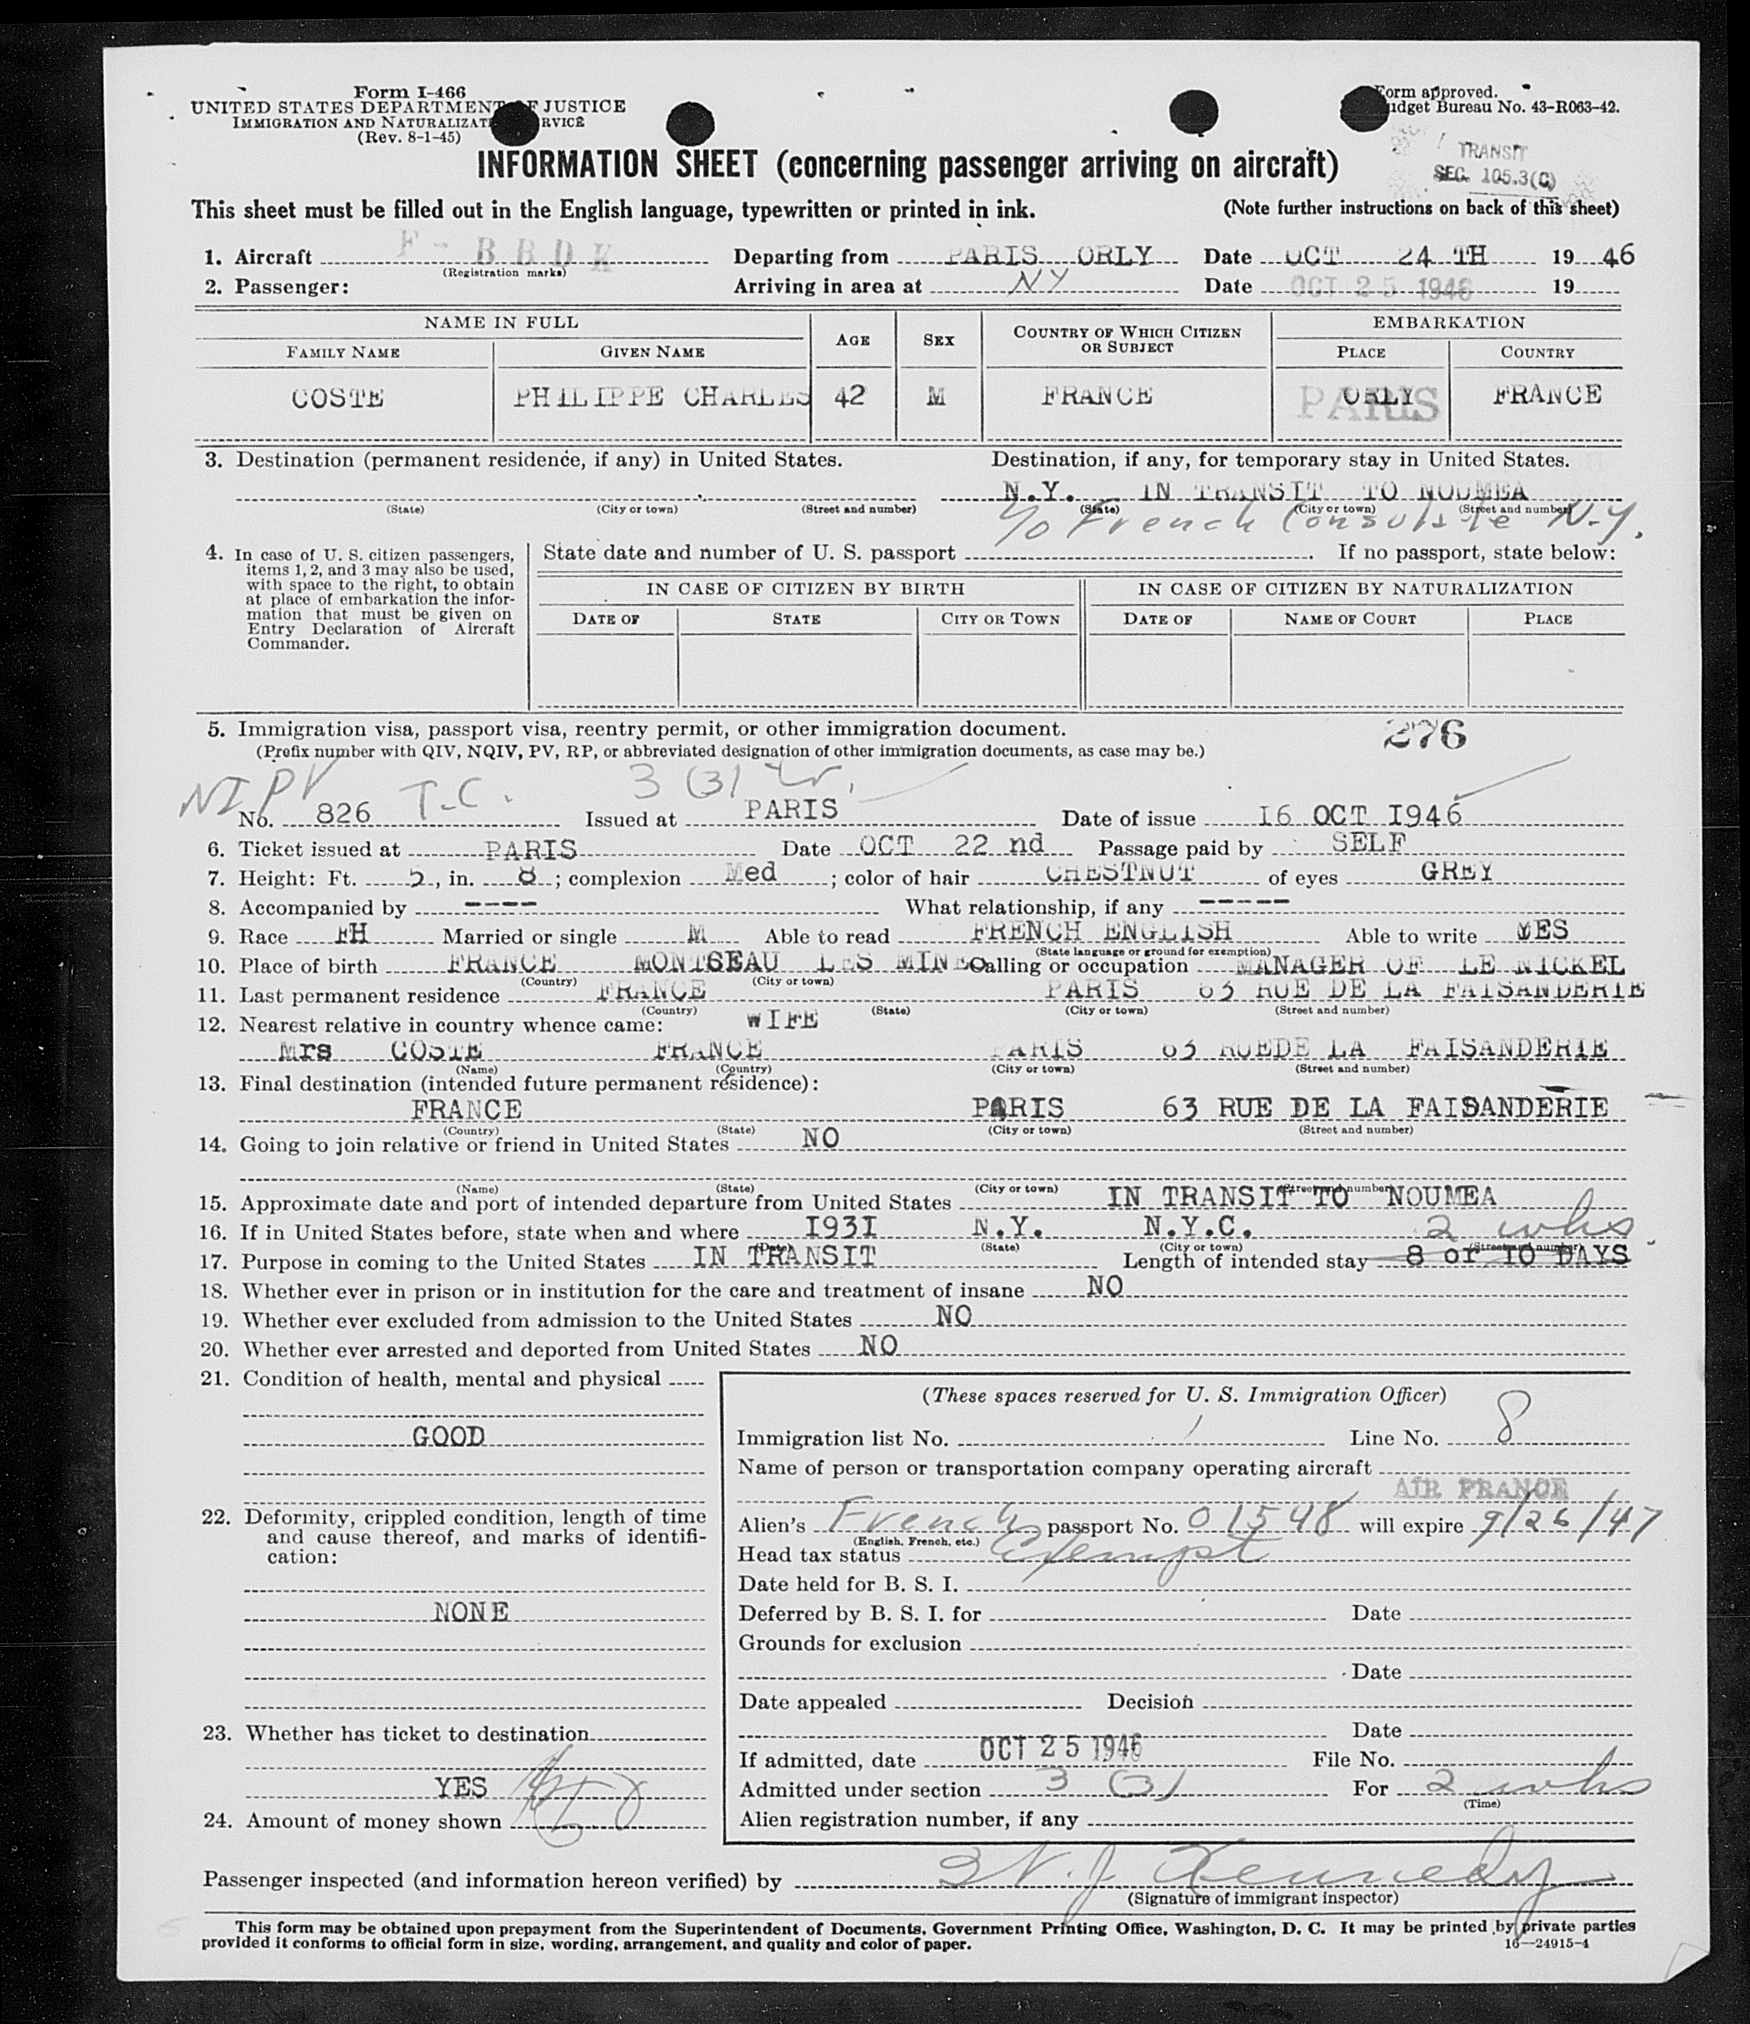 Form I-466
UNITED STATES DEPARTMENT OF JUSTICE
IMMIGRATION AND NATURALIZATION SERVICE
(Rev. 8-1-45)
Form approved.
Budget Bureau No. 43-R063-42.
TRANSIT
SEC. 105.3(C)
INFORMATION SHEET (concerning passenger arriving on aircraft)
This sheet must be filled out in the English language, typewritten or printed in ink. (Note further instructions on back of this sheet)
1. Aircraft F-BBDK Departing from PARIS ORLY Date OCT 24 TH 19 46
(Registration marks)
2. Passenger: Arriving in area at NY Date OCT 25 1946 19
NAME IN FULL AGE SEX COUNTRY OF WHICH CITIZEN OR SUBJECT EMBARKATION
FAMILY NAME GIVEN NAME PLACE COUNTRY
COSTE PHILIPPE CHARLES 42 M FRANCE ORLY PARIS FRANCE
3. Destination (permanent residence, if any) in United States. Destination, if any, for temporary stay in United States.
N.Y. IN TRANSIT TO NOUMEA
(State) (City or town) (Street and number) (State) (City or town) (Street and number)
c/o French Consulate N.Y.
4. In case of U. S. citizen passengers, items 1, 2, and 3 may also be used, with space to the right, to obtain at place of embarkation the information that must be given on Entry Declaration of Aircraft Commander.
State date and number of U. S. passport If no passport, state below:
IN CASE OF CITIZEN BY BIRTH IN CASE OF CITIZEN BY NATURALIZATION
DATE OF STATE CITY OR TOWN DATE OF NAME OF COURT PLACE
5. Immigration visa, passport visa, reentry permit, or other immigration document. 276
(Prefix number with QIV, NQIV, PV, RP, or abbreviated designation of other immigration documents, as case may be.)
NIPV T.C. 3 (3) tr.
No. 826 Issued at PARIS Date of issue 16 OCT 1946
6. Ticket issued at PARIS Date OCT 22 nd Passage paid by SELF
7. Height: Ft. 5, in. 8; complexion Med; color of hair CHESTNUT of eyes GREY
8. Accompanied by ---- What relationship, if any -----
9. Race FH Married or single M Able to read FRENCH ENGLISH Able to write YES
(State language or ground for exemption)
10. Place of birth FRANCE MONTSEAU LES MINES Calling or occupation MANAGER OF LE NICKEL
(Country) (City or town)
11. Last permanent residence FRANCE PARIS 63 RUE DE LA FAISANDERIE
(Country) (State) (City or town) (Street and number)
12. Nearest relative in country whence came: WIFE
Mrs COSTE FRANCE PARIS 63 RUEDE LA FAISANDERIE
(Name) (Country) (City or town) (Street and number)
13. Final destination (intended future permanent residence):
FRANCE PARIS 63 RUE DE LA FAISANDERIE
(Country) (State) (City or town) (Street and number)
14. Going to join relative or friend in United States NO
(Name) (State) (City or town) (Street and number)
15. Approximate date and port of intended departure from United States IN TRANSIT TO NOUMEA
16. If in United States before, state when and where 1931 N.Y. N.Y.C. 2 wks
(Date) (State) (City or town) (Street and number)
17. Purpose in coming to the United States IN TRANSIT Length of intended stay 8 or 10 DAYS
18. Whether ever in prison or in institution for the care and treatment of insane NO
19. Whether ever excluded from admission to the United States NO
20. Whether ever arrested and deported from United States NO
21. Condition of health, mental and physical
GOOD
22. Deformity, crippled condition, length of time and cause thereof, and marks of identification:
NONE
23. Whether has ticket to destination
YES
24. Amount of money shown
(These spaces reserved for U. S. Immigration Officer)
Immigration list No. 1 Line No. 8
Name of person or transportation company operating aircraft
AIR FRANCE
Alien's French passport No. 01548 will expire 9/26/47
(English, French, etc.)
Head tax status Exempt
Date held for B. S. I.
Deferred by B. S. I. for Date
Grounds for exclusion
Date
Date appealed Decision
Date
If admitted, date OCT 25 1946 File No.
Admitted under section 3 (3) For 2 wks
(Time)
Alien registration number, if any
Passenger inspected (and information hereon verified) by W. J. Kennedy
(Signature of immigrant inspector)
This form may be obtained upon prepayment from the Superintendent of Documents, Government Printing Office, Washington, D. C. It may be printed by private parties
provided it conforms to official form in size, wording, arrangement, and quality and color of paper. 16—24915-4